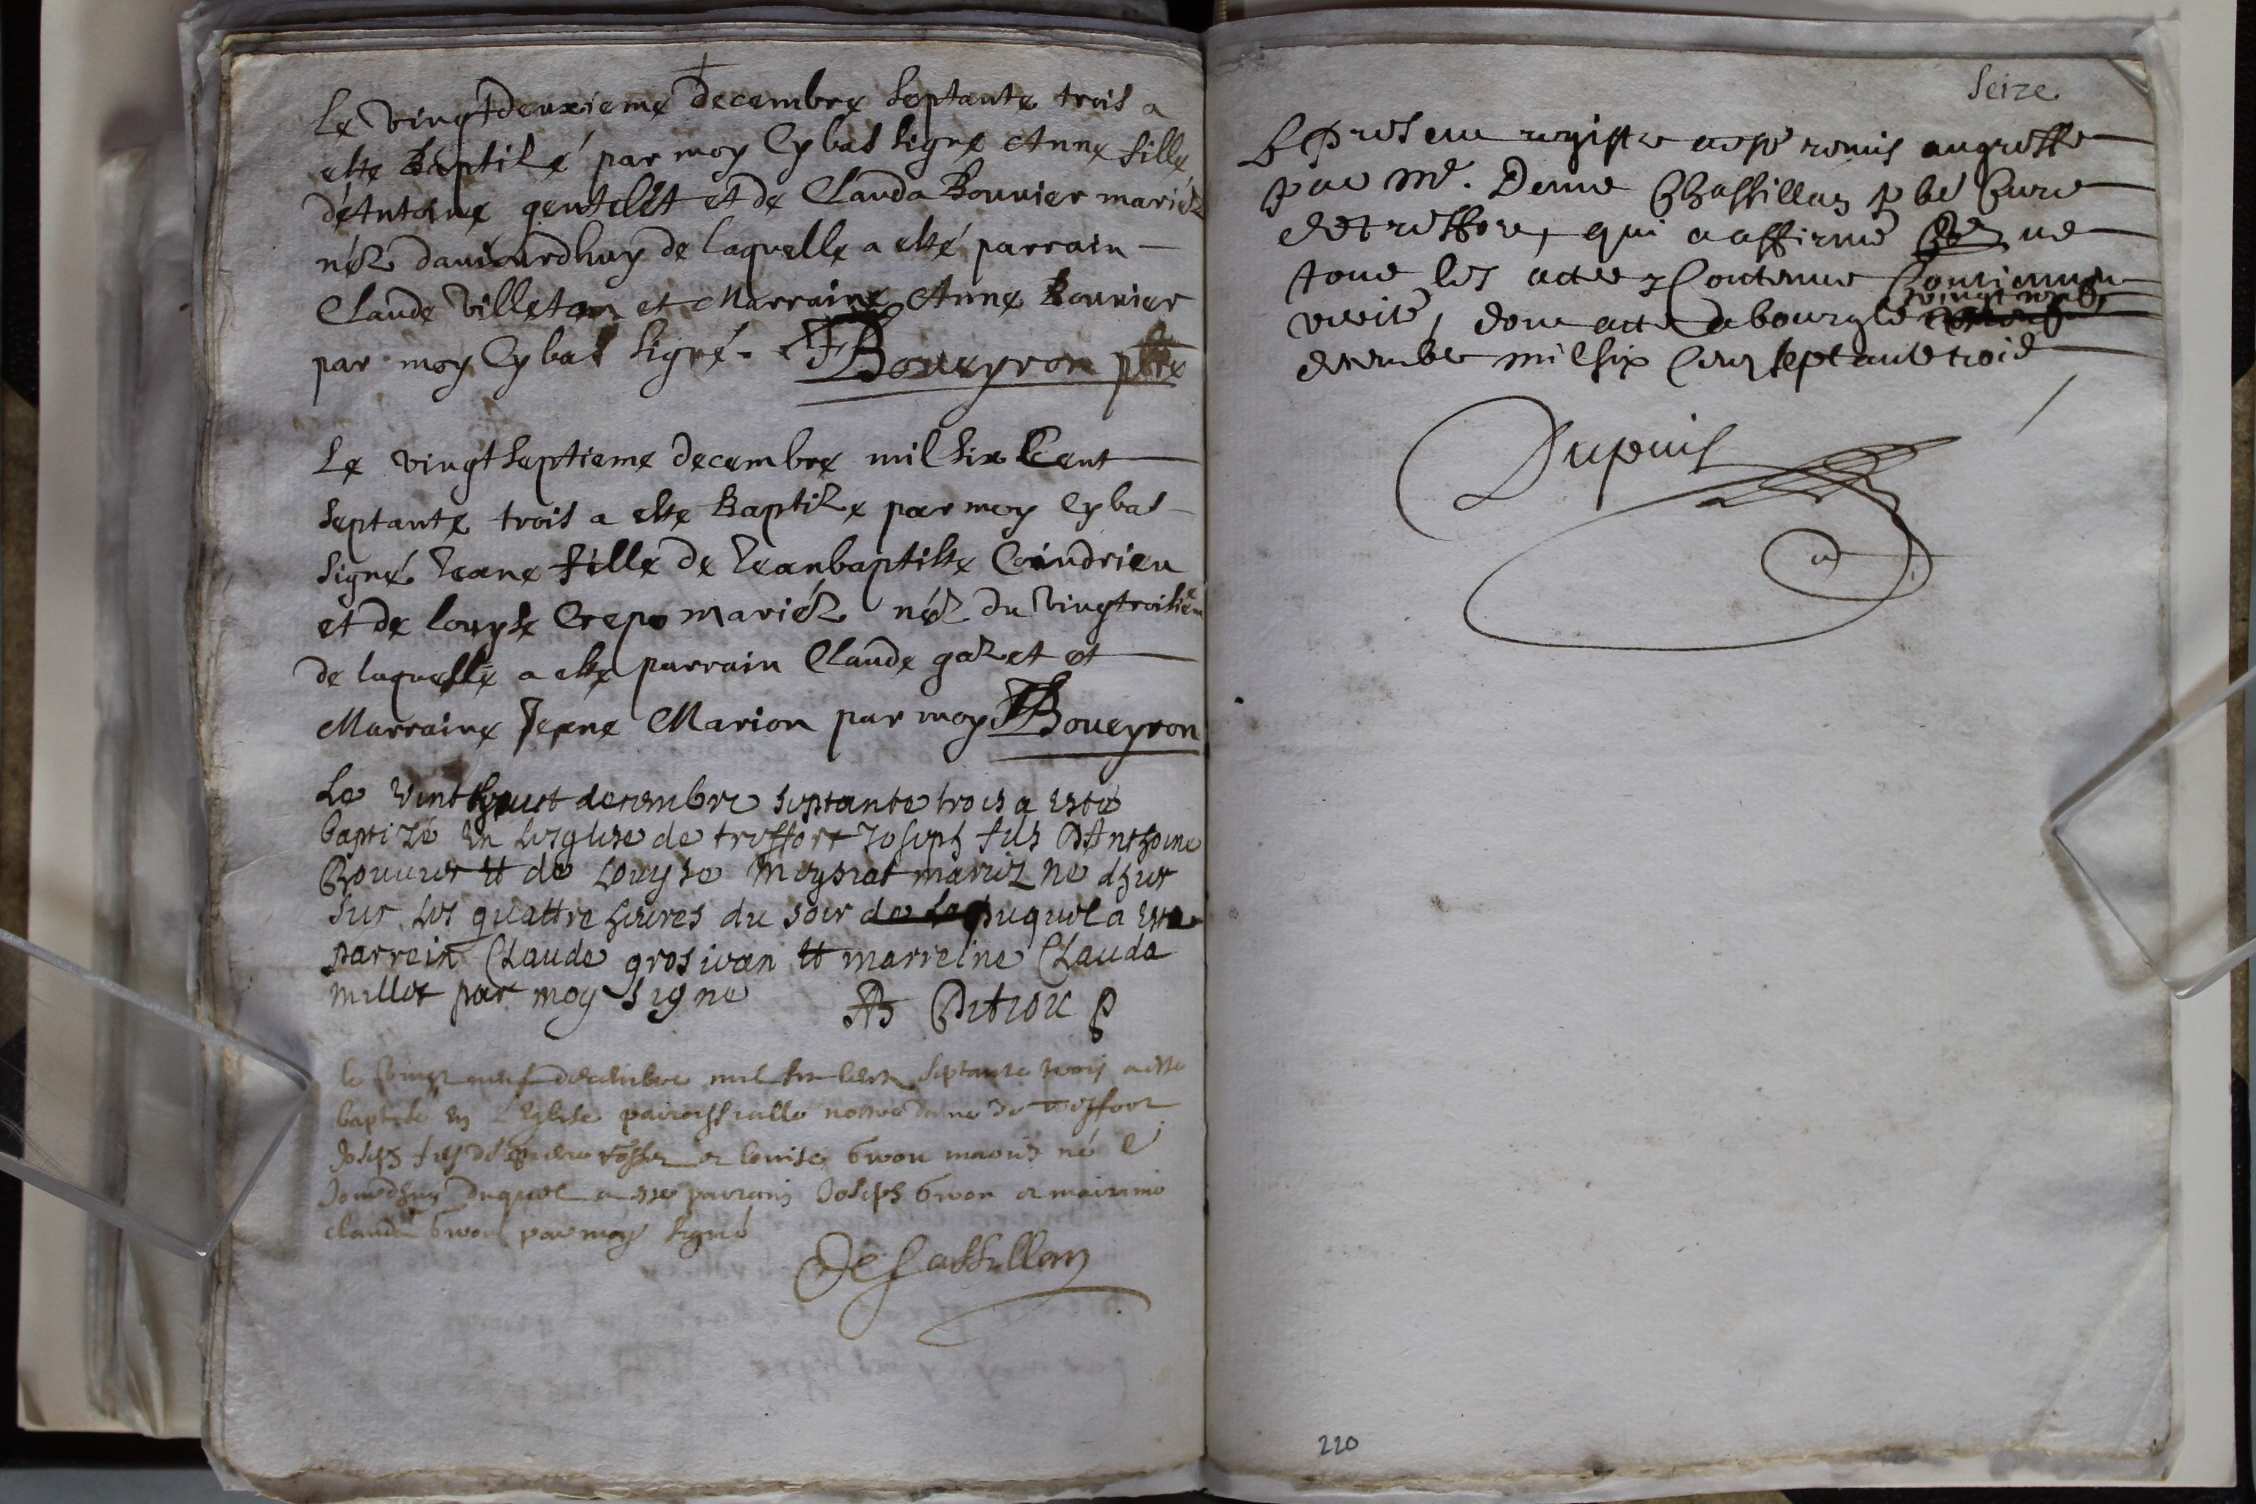 Le vingtdeuxieme decembre septante trois a
este Baptisé par moy Cybas signé Anne fille
d'Antoine gentelet et de Clauda Bouvier mariéz
néz dauiourdhuy de laquelle a esté parrain
Claude Villeton et Marraine Anne Bouvier
par moy Cybas signé. F Boueyron pbre
Le vingtseptieme decembre mil six Cent
septante trois a este Baptisé par moy Cybas
signé Jeane fille de Jeanbaptiste Coindrieu
et de louyse Crepo mariéz néz du vingtroisiem
de laquelle a este parrain Claude gazet et
Marraine Jeane Marion par moy F Boueyron
Le vint huict decembre septante trois a esté
baptizé en lesglise de treffort Joseph fils D'Anthoine
Bouvier et de Louyse Moyrat mariez né dhier
sur les quattre heures du soir duquel a esté
parrein Claude grosivan et marreine Clauda
millet par moy signe
le vingt neuf decembre mil six cent septante trois a este
baptisé en L'Eglise parrochialle nostre dame de treffort
Joseph fils de et louise mariés né
Jourdhuy duquel a esté parrain Joseph et marraine
claude par moy signé
Dechassillan
Seize
Le present registre a esté remis au greffe
par Me. Denis Chassillan pbr Curé
de treffort, qui a affirmé que
tous les actes y Contenus Contiennent
verité, dont acte a bourg le vingt neuf
decembre mil six Cens septante trois
Dupuis
220